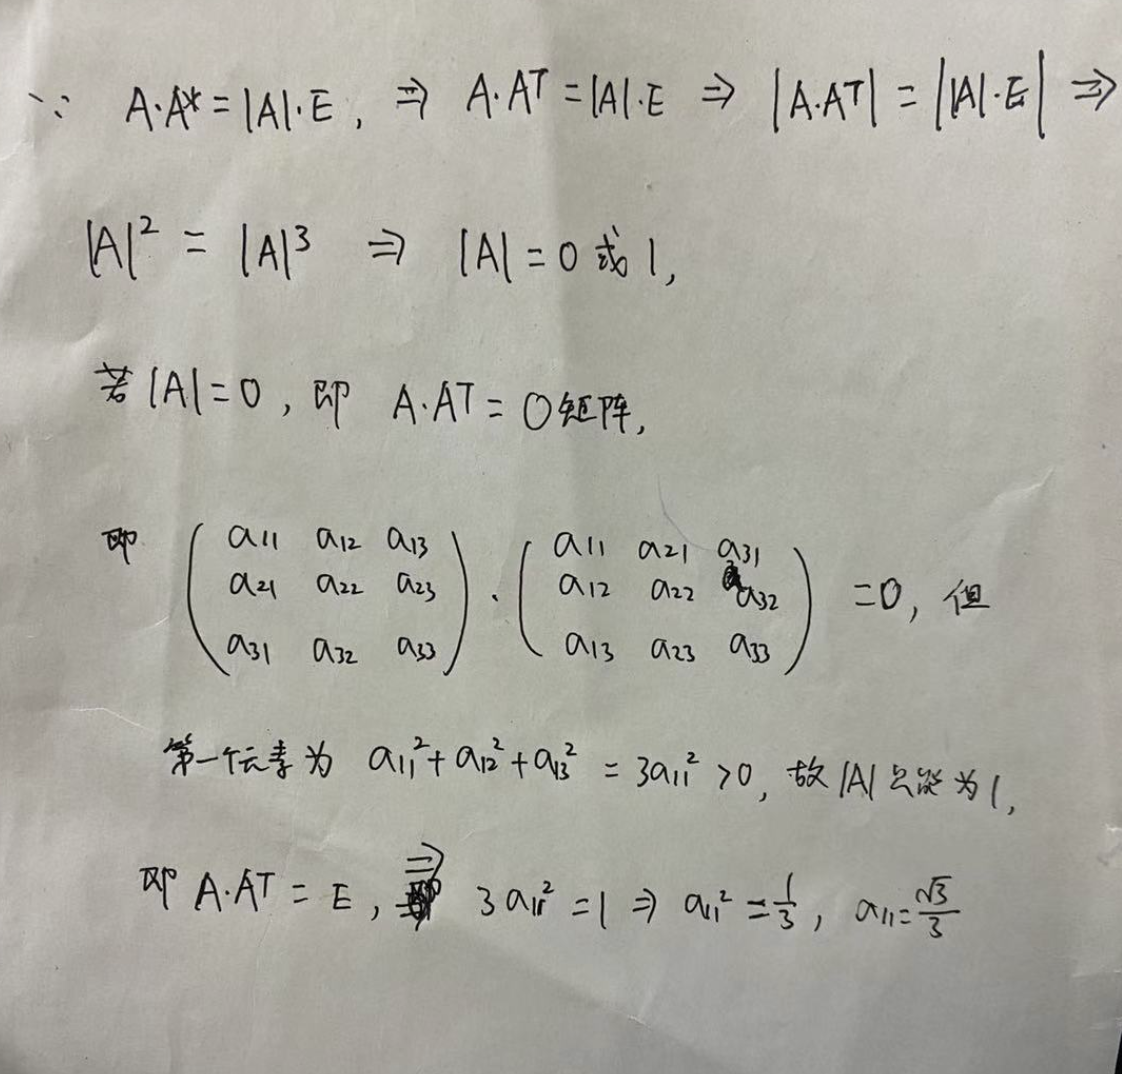 ∵ A·A* = |A|·E, ⇒ A·Aᵀ = |A|·E ⇒ |A·Aᵀ| = ||A|·E| ⇒
|A|² = |A|³ ⇒ |A| = 0 或 1,
若 |A| = 0, 即 A·Aᵀ = 0矩阵,
即 ( a₁₁ a₁₂ a₁₃ ) · ( a₁₁ a₂₁ a₃₁ )
( a₂₁ a₂₂ a₂₃ ) ( a₁₂ a₂₂ a₃₂ ) = 0, 但
( a₃₁ a₃₂ a₃₃ ) ( a₁₃ a₂₃ a₃₃ )
第一个元素为 a₁₁² + a₁₂² + a₁₃² = 3a₁₁² > 0, 故 |A| 只能为 1,
即 A·Aᵀ = E, ⇒ 3a₁₁² = 1 ⇒ a₁₁² = 1/3, a₁₁ = √3/3